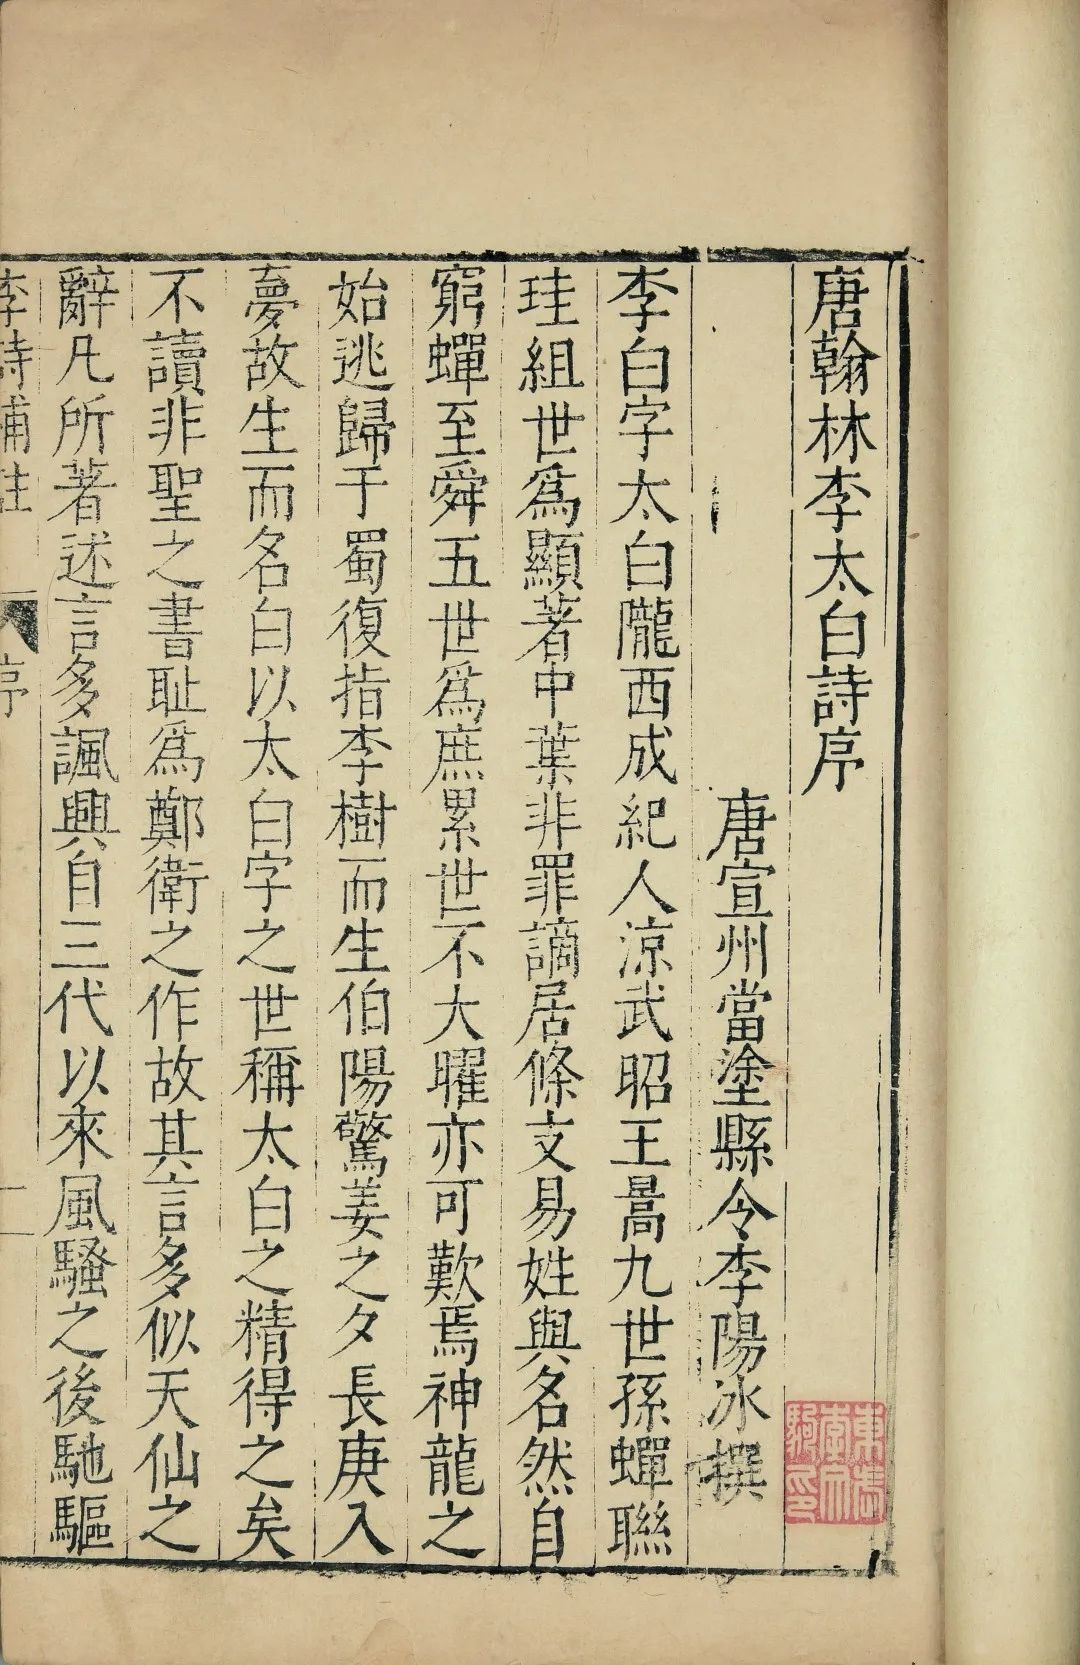 唐翰林李太白詩序
唐宣州當塗縣令李陽冰撰
李白字太白隴西成紀人涼武昭王暠九世孫蟬聯
珪組世爲顯著中葉非罪謫居條支易姓與名然自
窮蟬至舜五世爲庶累世不大曜亦可歎焉神龍之
始逃歸于蜀復指李樹而生伯陽驚姜之夕長庚入
夢故生而名白以太白字之世稱太白之精得之矣
不讀非聖之書耻爲鄭衛之作故其言多似天仙之
辭凡所著述言多諷興自三代以來風騷之後馳驅
李詩補註 序 一